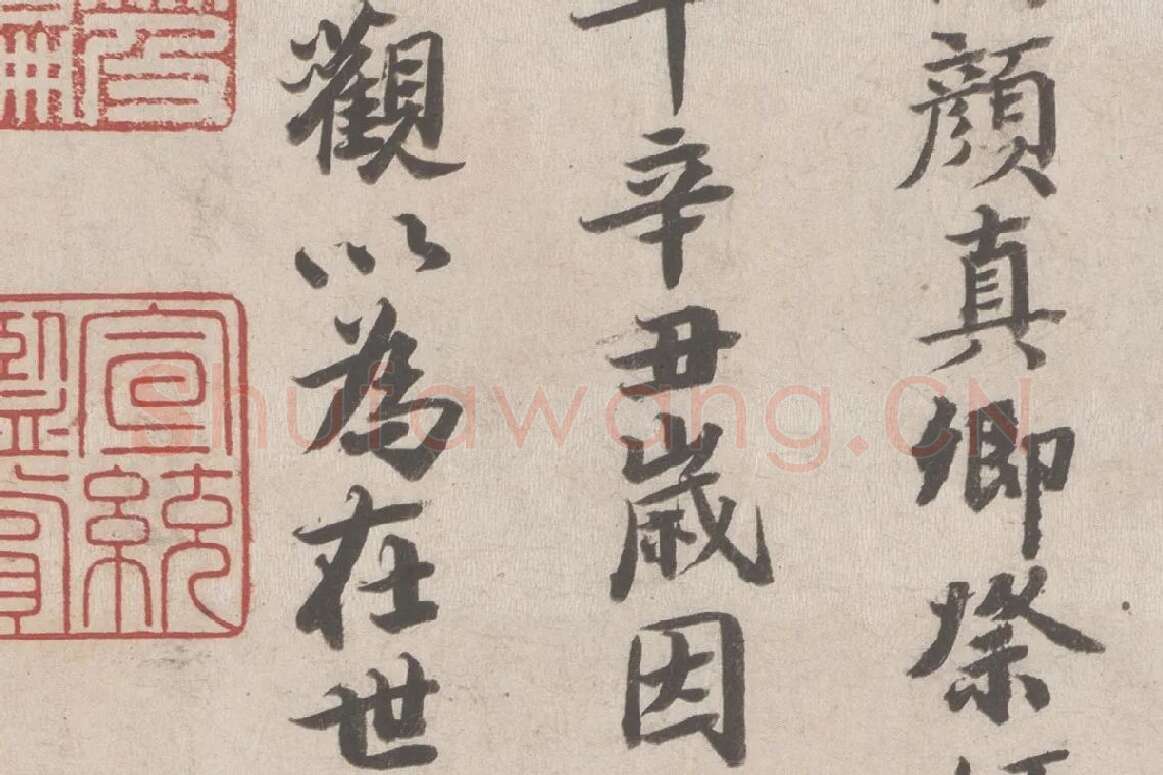 顔真卿祭
辛丑歳因
觀以為在世
宣統
Shufawang.CN